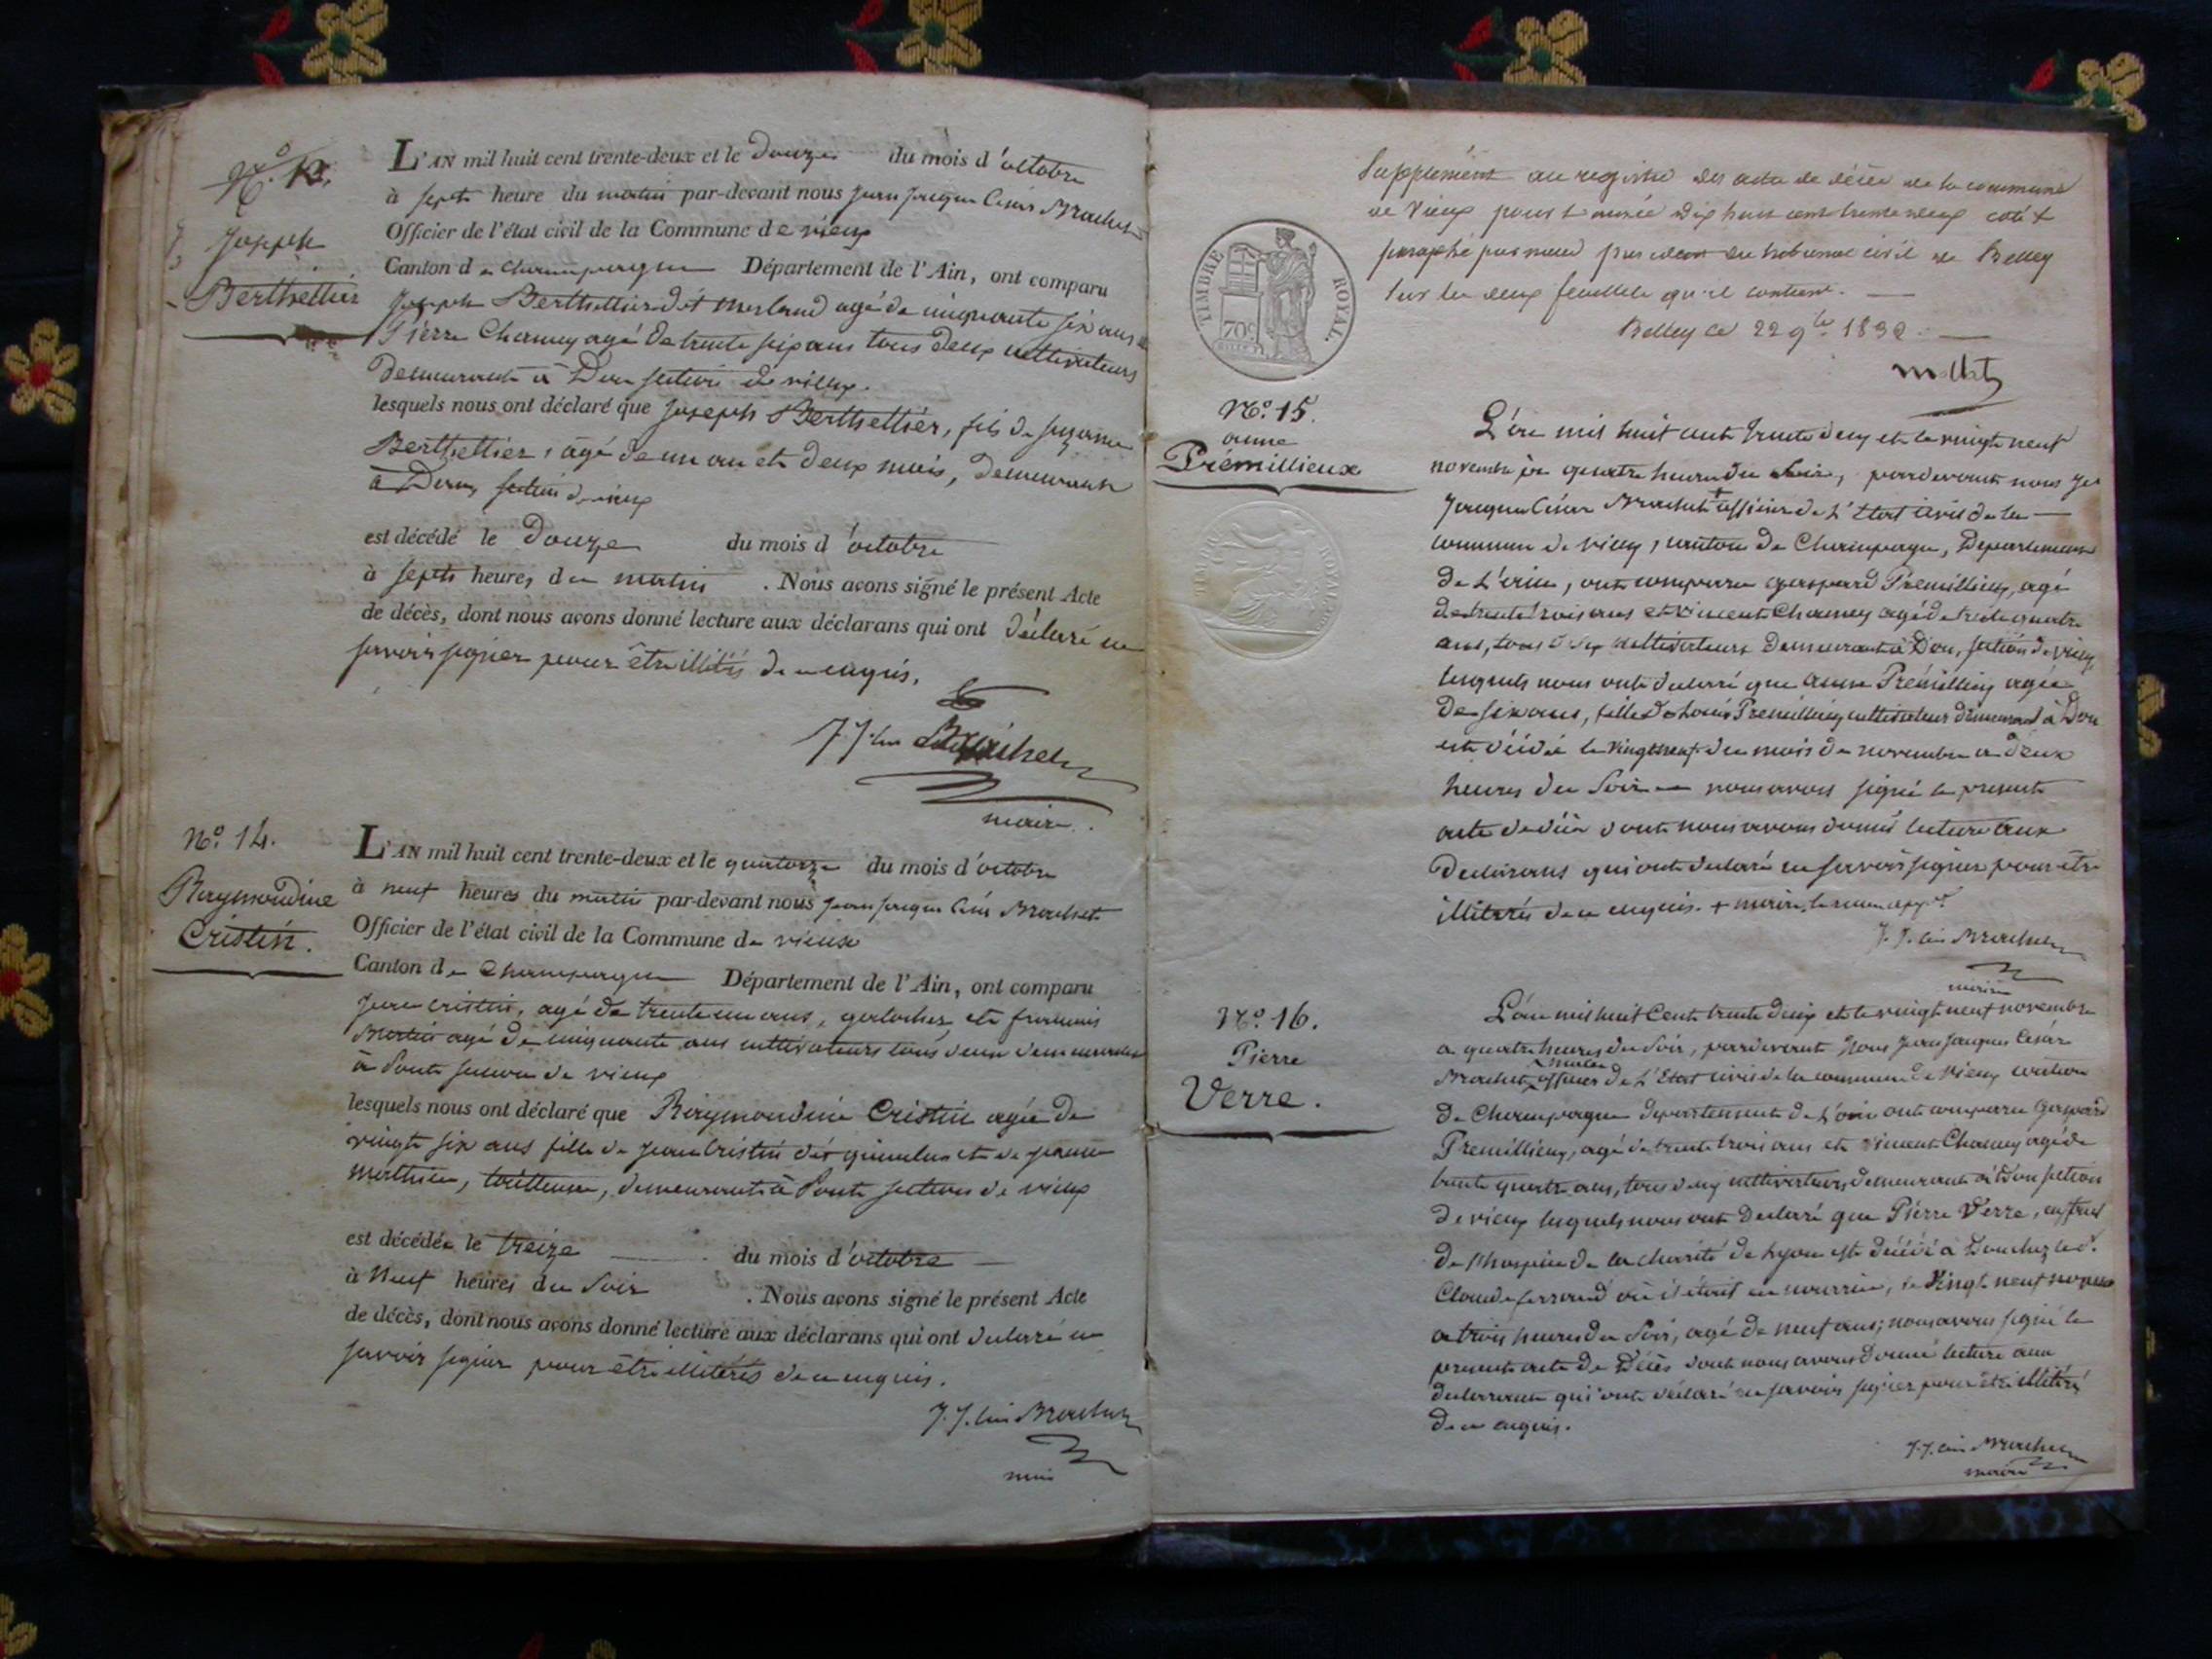 N.º 13.
Joseph
Berthellier
L'AN mil huit cent trente-deux et le Douze du mois d'octobre
à septs heure du matin par-devant nous jean jacques César Brachet
Officier de l'état civil de la Commune de vieux
Canton de Champagne Département de l'Ain, ont comparu
Joseph Berthellier dit merland agé de cinquante six ans et
Pierre Chamey agé de trente six ans tous deux cultivateurs
demeurants à Don section de vieux.
lesquels nous ont déclaré que joseph Berthellier, fils de suzanne
Berthellier, âgé de un an et deux mois, demeurant
à Don, section de vieux
est décédé le Douze du mois d'octobre
à septs heures du matin . Nous avons signé le présent Acte
de décès, dont nous avons donné lecture aux déclarans qui ont déclaré ne
savoir signer pour être illitérés de ce enquis.
J. J. César Brachet
maire.
Nº. 14.
Raymondine
Cristin.
L'AN mil huit cent trente-deux et le quatorze du mois d'octobre
à neuf heures du matin par-devant nous jean jacques César Brachet
Officier de l'état civil de la Commune de vieux
Canton de Champagne Département de l'Ain, ont comparu
jean cristin, agé de trente un ans, galocher, et francois
Martin agé de cinquante ans cultivateurs tous deux demeurants
à Pont section de vieux
lesquels nous ont déclaré que Raymondine Cristin agée de
vingt six ans fille de jean Cristin dit et de jeanne
Mathieu, tailleuse, demeurant à Pont section de vieux
est décédée le treize du mois d'octobre
à Neuf heures du Soir . Nous avons signé le présent Acte
de décès, dont nous avons donné lecture aux déclarans qui ont declaré ne
savoir signer pour être illitérés de ce enquis.
J. J. César Brachet
maire
Supplément au registre des actes de décès de la commune
de Vieux pour l'année dix huit cent trente deux coté &
paraphé par nous president du tribunal civil de Belley
sur les deux feuillets qu'il contient.
Belley le 22 9bre 1832.
mollet
TIMBRE ROYAL.
70c
Nº. 15.
anne
Prémillieux
L'an mil huit cent trente deux et le vingt neuf
novembre à quatre heures du Soir, pardevant nous Jean
Jacques César Brachet + officier de L'Etat Civil de la
commune de vieux, canton de Champagne, Departement
de L'ain, ont comparu gaspard Prémillieux, agé
de trente trois ans et vincent Chamey agé de trente quatre
ans, tous deux cultivateurs demeurants à Don, section de vieux
lesquels nous ont déclaré que anne Prémillieux agée
de six ans, fille de Louis Premillieux cultivateur demeurant à Don
est décédée le vingt neuf du mois de novembre a deux
heures du Soir nous avons signé le present
acte de décès dont nous avons donné lecture aux
declarans qui ont declaré ne savoir signer pour être
illitérés de ce enquis. + maire, le renvoi app.é
J. J. César Brachet
maire
Nº. 16.
Pierre
Verre.
L'an mil huit Cent trente deux et le vingt neuf novembre
a quatre heures du Soir, pardevant Nous jean jacques César
Brachet, maire officier de L'Etat civil de la commune de vieux canton
de Champagne departement de L'ain ont comparu gaspard
Premillieux, agé de trente trois ans et vincent Chamey agé de
trente quatre ans, tous deux cultivateurs demeurants à Don section
de vieux lesquels nous ont declaré que Pierre Verre, enfant
de l'hospice de la charité de Lyon est décédé à Don chez led.
Claude ferrand où il était en nourrice, le vingt neuf novembre
a trois heures du Soir, agé de neuf ans; nous avons signé le
present acte de Décès dont nous avons donné lecture aux
declarants qui ont déclaré ne savoir signer pour être illitérés
de ce enquis.
J. J. César Brachet
maire